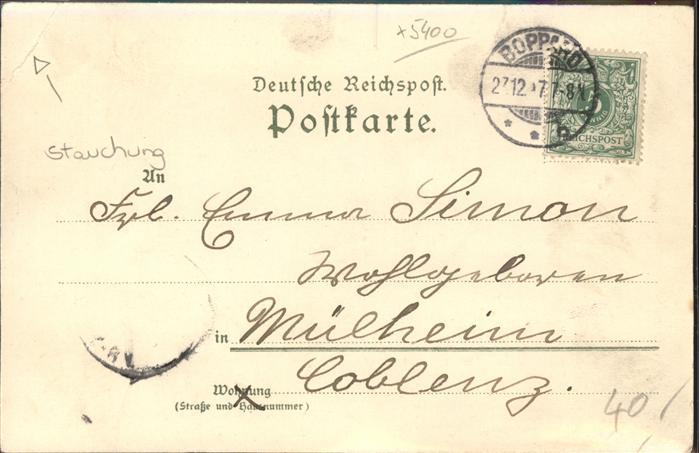 x5400
BOPPARD
27 12 97 7-8N
REICHSPOST
Deutsche Reichspost.
Postkarte.
Stauchung
An
Frl. Emma Simon
Wohlgeboren
in Mülheim
Coblenz.
Wohnung
(Straße und Hausnummer)
40